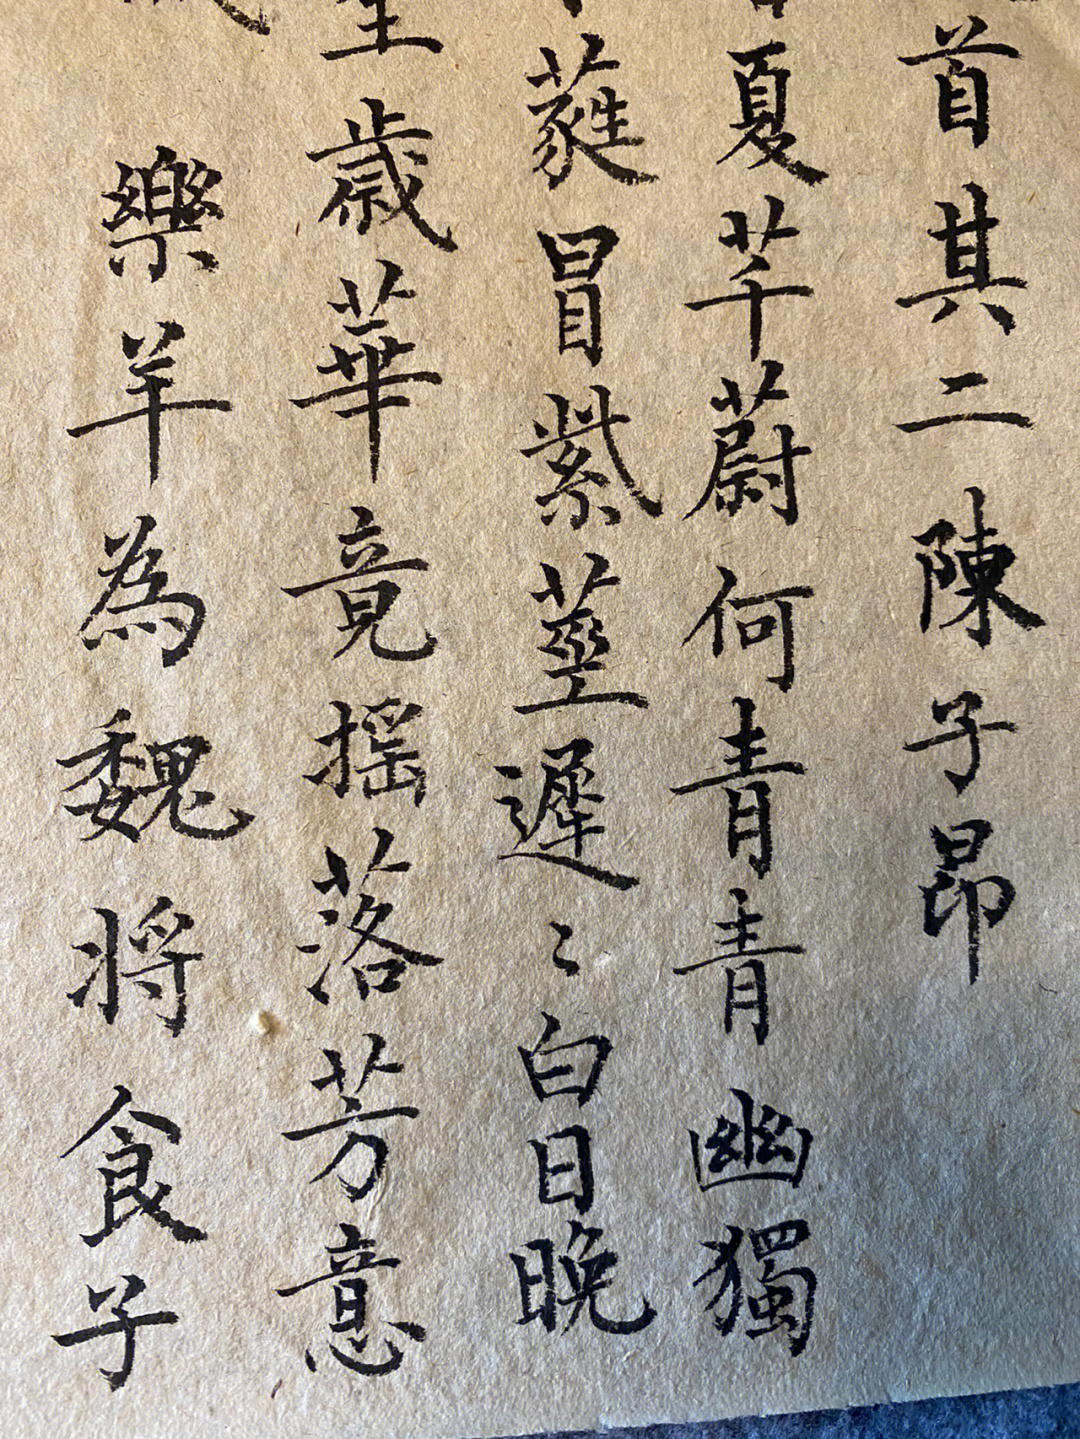 首其二陳子昂
夏芊蔚何青青幽獨
蕤冒紫莖遲〻白日晚
歲華竟搖落芳意
樂羊為魏將食子